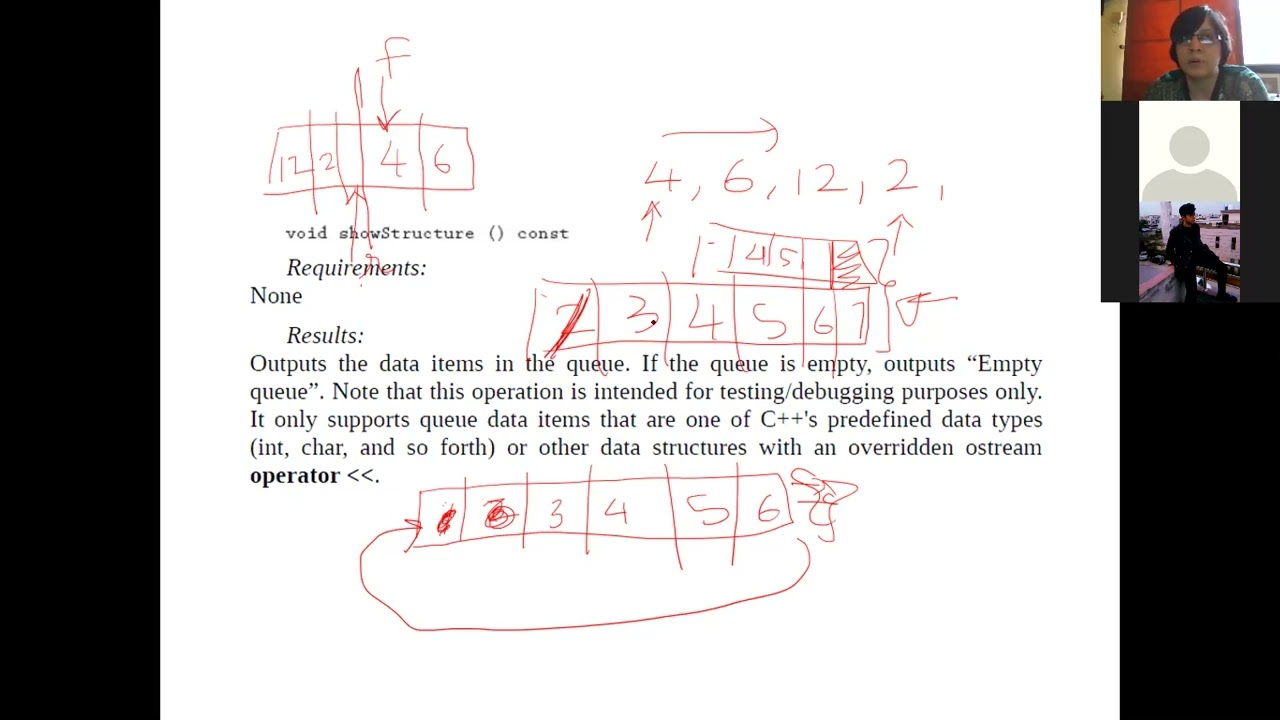 F
12 2 4 6
4, 6, 12, 2,
4 5
void showStructure () const
r
Requirements:
None
2 3 4 5 6 7
Results:
Outputs the data items in the queue. If the queue is empty, outputs “Empty
queue”. Note that this operation is intended for testing/debugging purposes only.
It only supports queue data items that are one of C++'s predefined data types
(int, char, and so forth) or other data structures with an overridden ostream
operator <<.
3 4 5 6